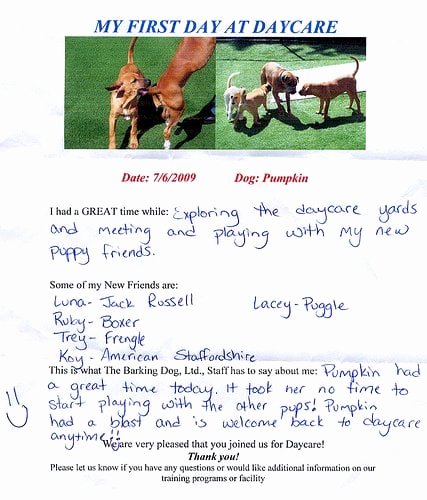 MY FIRST DAY AT DAYCARE
Date: 7/6/2009 Dog: Pumpkin
I had a GREAT time while: Exploring the daycare yards
and meeting and playing with my new
puppy friends.
Some of my New Friends are:
Luna- Jack Russell Lacey- Puggle
Ruby- Boxer
Trey- Frengle
Koy- American Staffordshire
This is what The Barking Dog, Ltd., Staff has to say about me: Pumpkin had
a great time today. It took her no time to
start playing with the other pups! Pumpkin
had a blast and is welcome back to daycare
anytime!!
We are very pleased that you joined us for Daycare!
Thank you!
Please let us know if you have any questions or would like additional information on our
training programs or facility